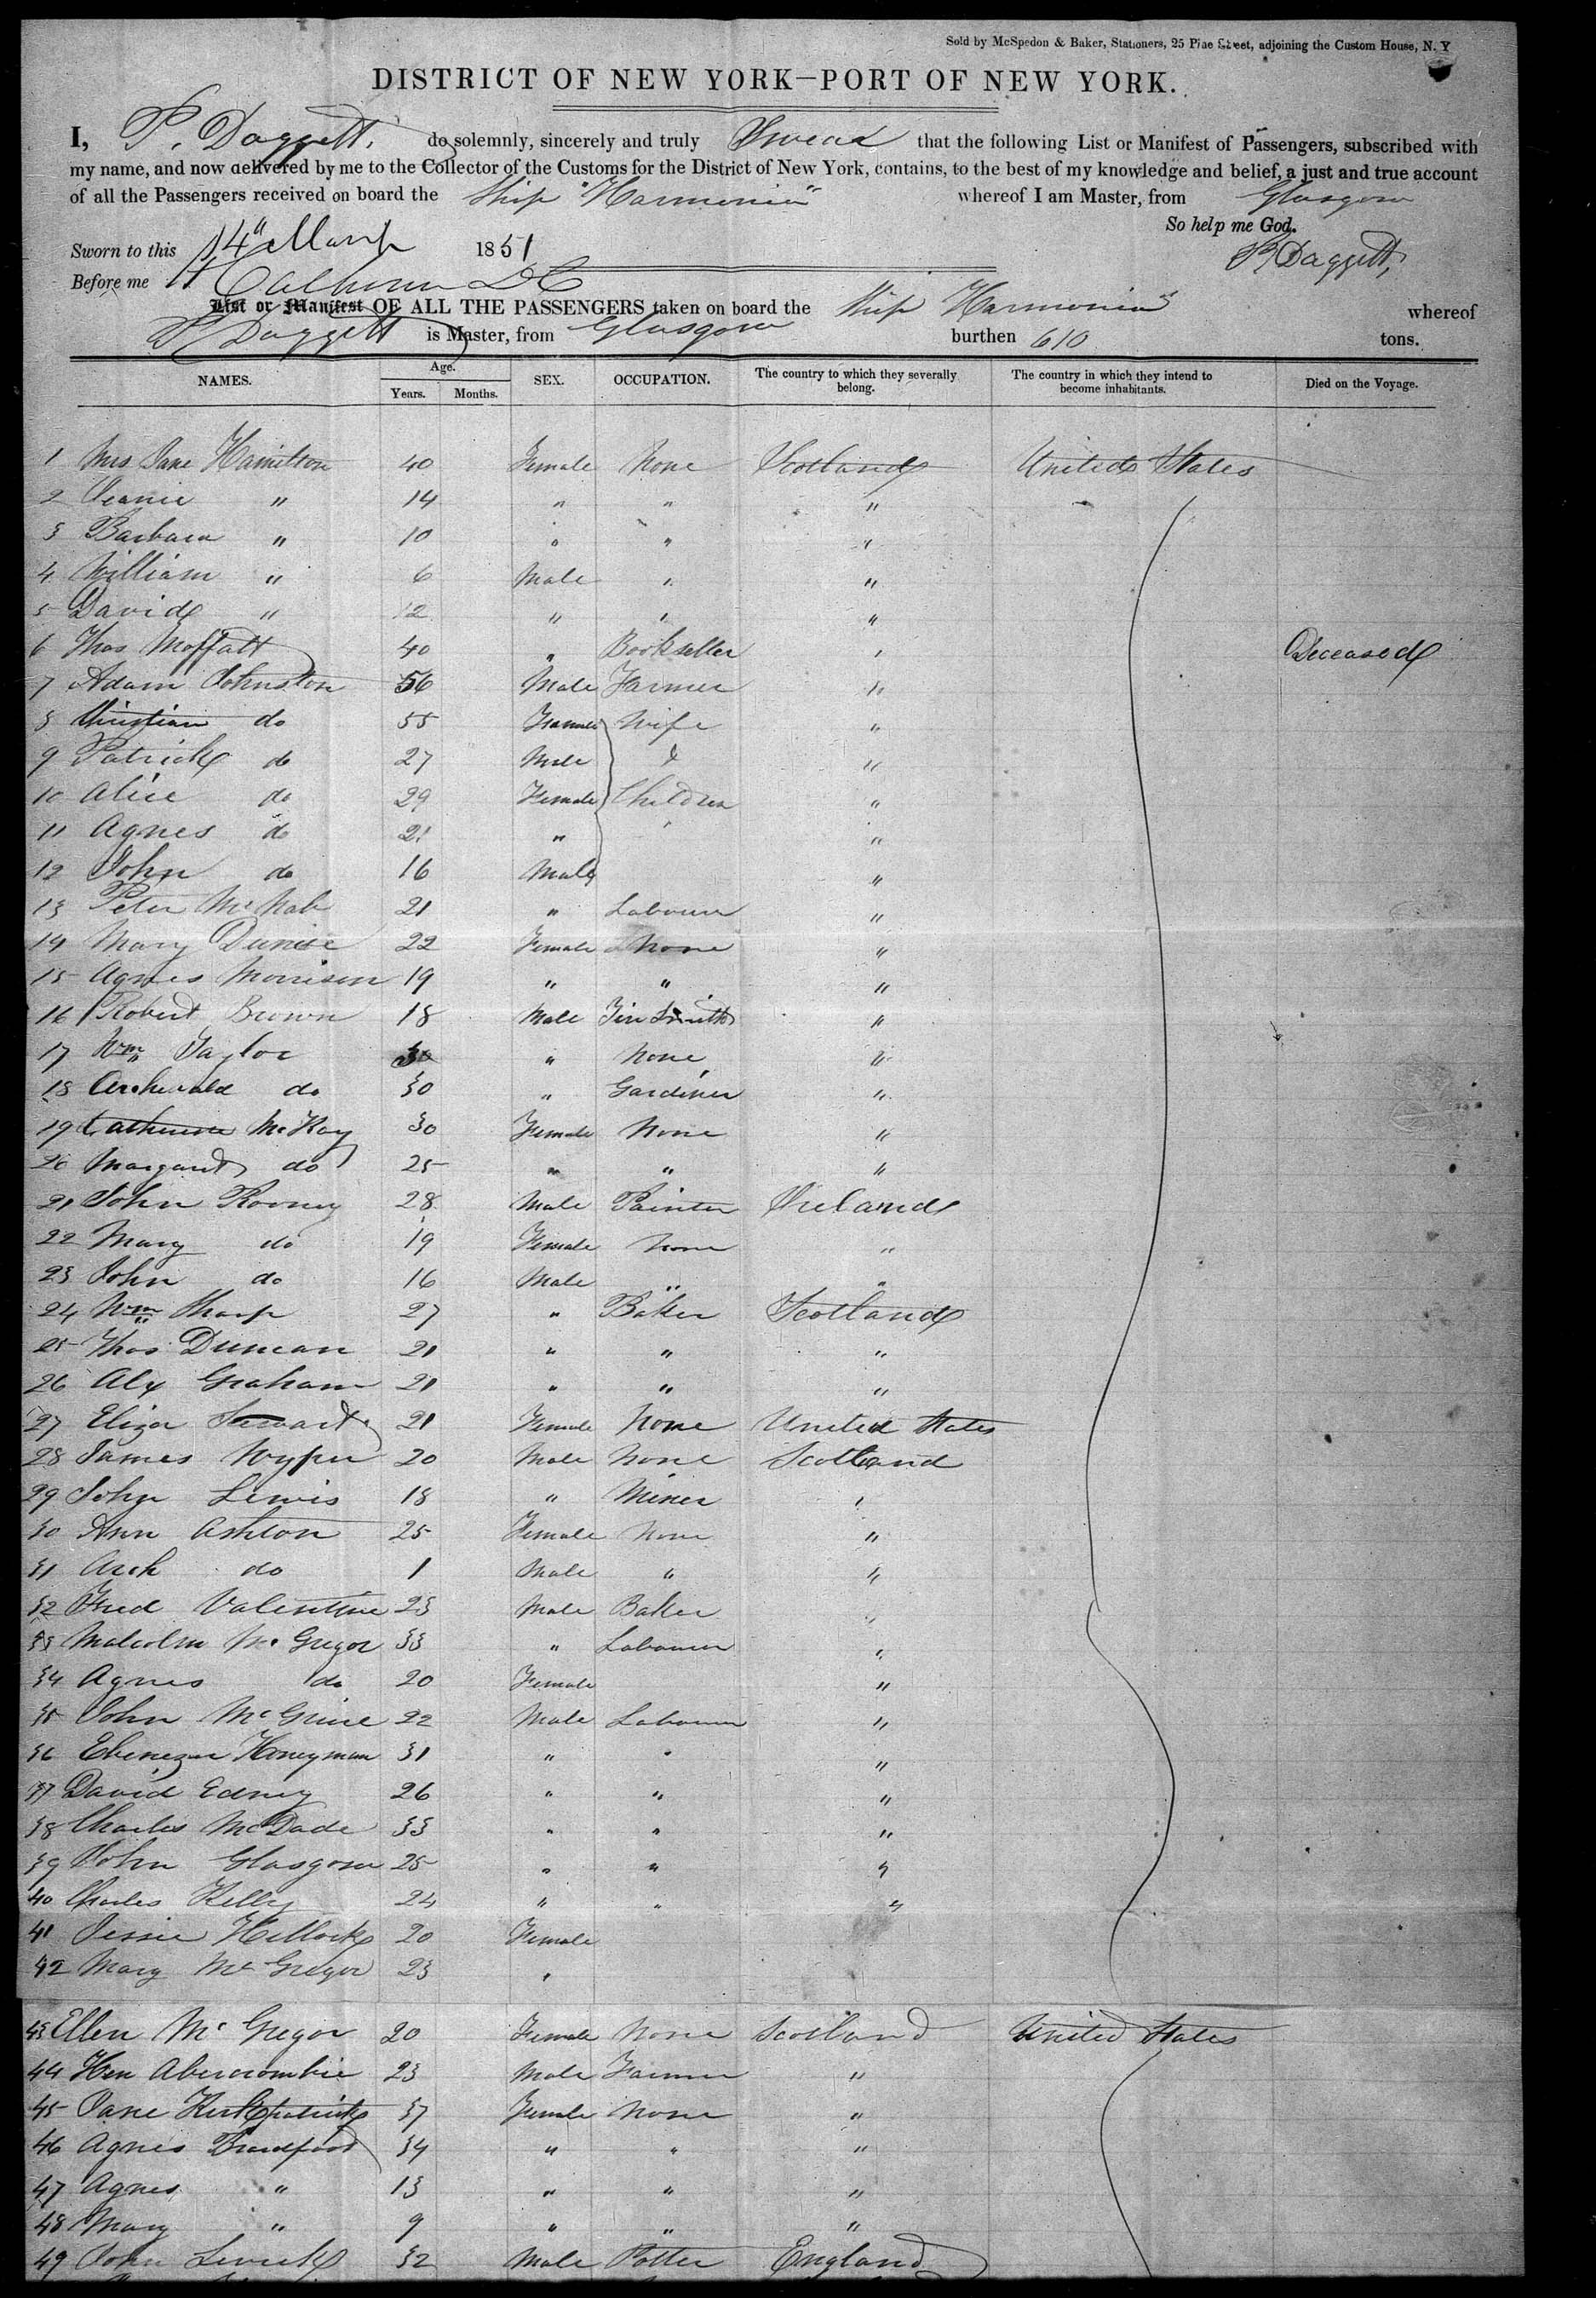 Sold by McSpedon & Baker, Stationers, 25 Pine Street, adjoining the Custom House, N. Y
DISTRICT OF NEW YORK—PORT OF NEW YORK.
I, P. Daggett, do solemnly, sincerely and truly Swear that the following List or Manifest of Passengers, subscribed with
my name, and now delivered by me to the Collector of the Customs for the District of New York, contains, to the best of my knowledge and belief, a just and true account
of all the Passengers received on board the Ship "Harmonia" whereof I am Master, from Glasgow
So help me God.
Sworn to this 14" March 1851
P. Daggett,
Before me Calhoun DC
List or Manifest OF ALL THE PASSENGERS taken on board the Ship Harmonia whereof
P. Daggett is Master, from Glasgow burthen 610 tons.
NAMES. Age. Years. Months. SEX. OCCUPATION. The country to which they severally belong. The country in which they intend to become inhabitants. Died on the Voyage.
1 Mrs Jane Hamilton 40 Female None Scotland United States
2 Jeanie " 14 " " "
3 Barbara " 10 " " "
4 William " 6 Male " "
5 David " 12 " " "
6 Thos Moffatt 40 " Bookseller " Deceased
7 Adam Johnston 56 Male Farmer "
8 Christian do 55 Female Wife "
9 Patrick do 27 Male & "
10 Alice do 29 Female Children "
11 Agnes do 21 " "
12 John do 16 Male "
13 Peter McNab 21 " Labourer "
14 Mary 22 Female None "
15 Agnes Morrison 19 " " "
16 Robert Brown 18 Male Tin Smith "
17 Wm Taylor " None "
18 Archevald do 30 " Gardiner "
19 Catherine McKay 30 Female None "
20 Margaret do 25 " " "
21 John Rooney 28 Male Painter Ireland
22 Mary do 19 Female None "
23 John do 16 Male " "
24 Wm Sharp 27 " Baker Scotland
25 Thos Duncan 21 " " "
26 Alex Graham 21 " " "
27 Eliza Stewart 21 Female None United States
28 James Wyper 20 Male None Scotland
29 John Lewis 18 " Miner "
30 Ann Ashton 25 Female None "
31 Arch do 1 Male " "
32 Fred Valentine 23 Male Baker "
33 Malcolm McGregor 33 " Labourer "
34 Agnes do 20 Female "
35 John McGuire 22 Male Labourer "
36 Ebenezer Honeyman 31 " " "
37 David Edney 26 " " "
38 Charles McDade 33 " " "
39 John Glasgow 25 " " "
40 Charles Kelly 24 " " "
41 Jessie 20 Female
42 Mary McGregor 23 "
43 Ellen McGregor 20 Female None Scotland United States
44 Hen Abercrombie 23 Male Farmer "
45 Jane Kirkpatrick 37 Female None "
46 Agnes Broadfoot 34 " " "
47 Agnes " 13 " " "
48 Mary " 9 " " "
49 John 32 Male Potter England